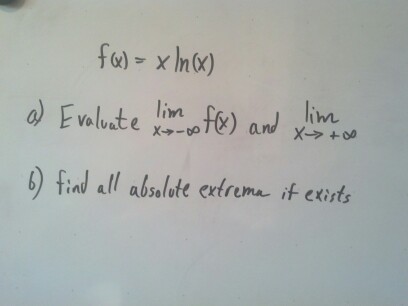 f(x) = x ln(x)
a) Evaluate lim x→-∞ f(x) and lim x→+∞
b) find all absolute extrema if exists